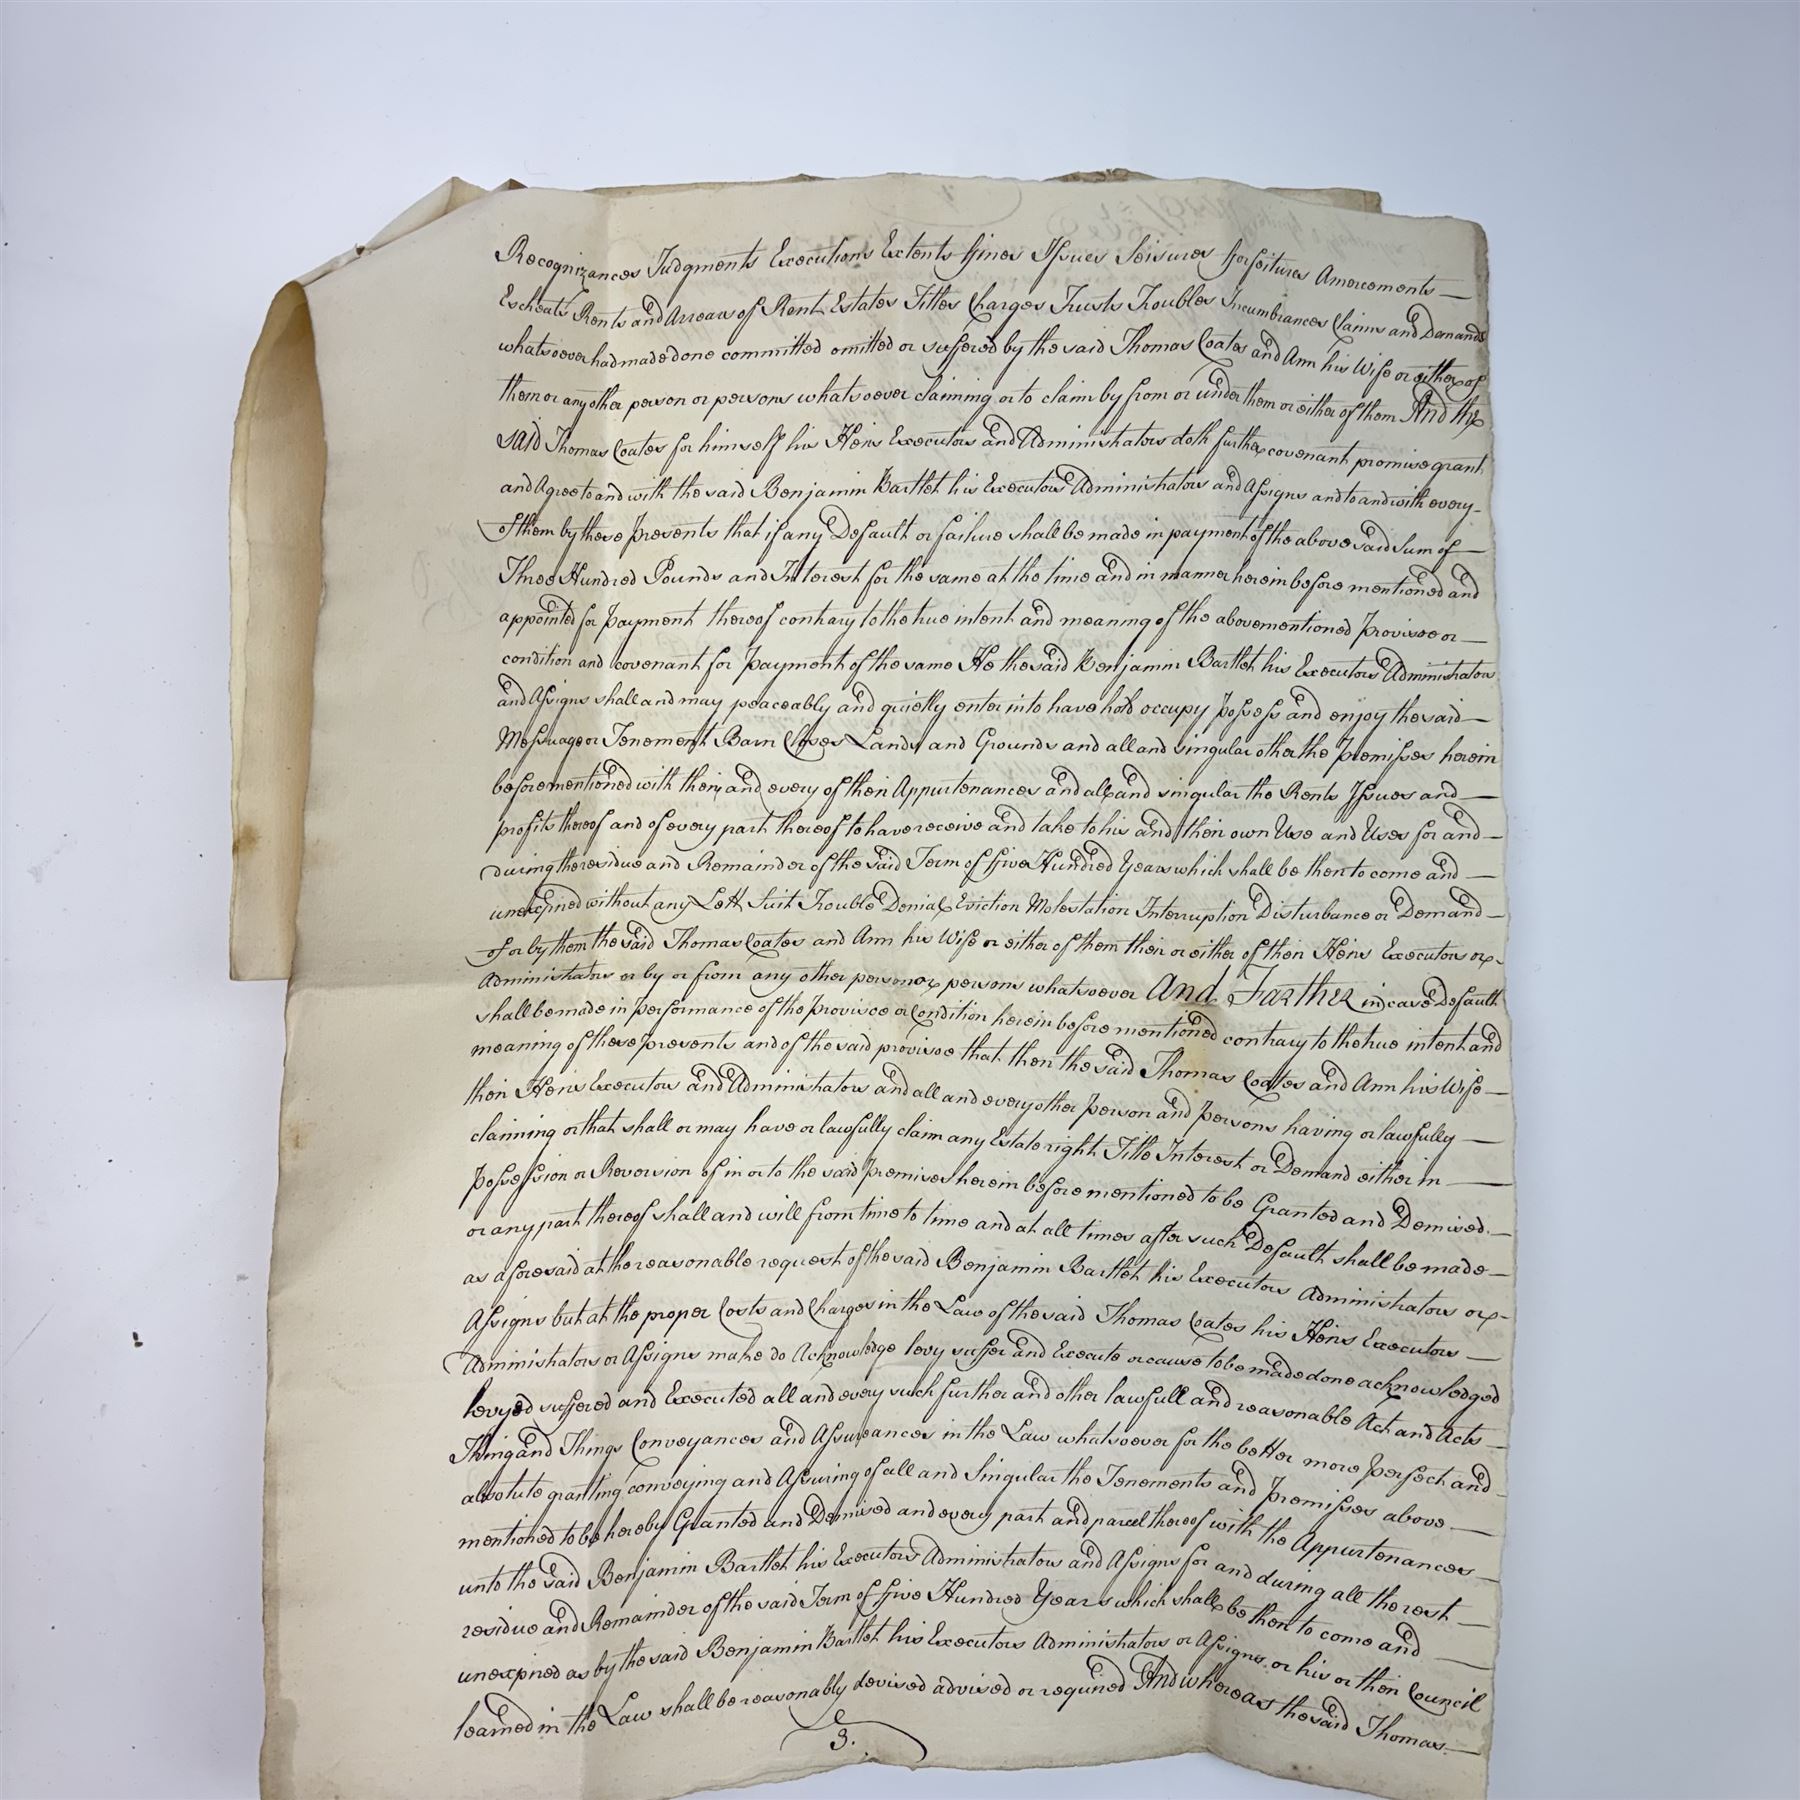 Recognizances Judgments Executions Extents ffines Issues Seisures fforfeitures Amercements
Escheats Rents and Arrears of Rent Estates Titles Charges Trusts Troubles Incumbrances Claims and Demands
whatsoever had made done committed omitted or suffered by the said Thomas Coates and Ann his Wife or either of
them or any other person or persons whatsoever claiming or to claim by from or under them or either of them And the
said Thomas Coates for himself his Heirs Executors and Administrators doth further covenant promise grant
and Agree to and with the said Benjamin Bartlet his Executors Administrators and Assigns and to and with every
of them by these presents that if any Default or failure shall be made in payment of the abovesaid Sum of
Three Hundred Pounds and Interest for the same at the time and in manner herein before mentioned and
appointed for payment thereof contrary to the true intent and meaning of the abovementioned Provisoe or
condition and covenant for payment of the same He the said Benjamin Bartlet his Executors Administrators
and Assigns shall and may peaceably and quietly enter into have hold occupy possess and enjoy the said
Messuage or Tenement Barn Closes Lands and Grounds and all and singular other the Premisses herein
before mentioned with their and every of their Appurtenances and all and singular the Rents Issues and
profits thereof and of every part thereof to have receive and take to his and their own Use and Uses for and
during the residue and Remainder of the said Term of ffive Hundred Years which shall be then to come and
unexpired without any Lett Suit Trouble Denial Eviction Molestation Interruption Disturbance or Demand
of or by them the said Thomas Coates and Ann his Wife or either of them their or either of their Heirs Executors or
Administrators or by or from any other person or persons whatsoever And Farther in case Default
shall be made in performance of the Provisoe or Condition herein before mentioned contrary to the true intent and
meaning of these presents and of the said provisoe that then the said Thomas Coates and Ann his Wife
their Heirs Executors and Administrators and all and every other person and persons having or lawfully
claiming or that shall or may have or lawfully claim any Estate right Title Interest or Demand either in
Possession or Reversion of in or to the said premises herein before mentioned to be Granted and Demised
or any part thereof shall and will from time to time and at all times after such Default shall be made
as aforesaid at the reasonable request of the said Benjamin Bartlet his Executors Administrators or
Assigns but at the proper Costs and Charges in the Law of the said Thomas Coates his Heirs Executors
Administrators or Assigns make do Acknowledge levy suffer and Execute or cause to be made done acknowledged
levyed suffered and Executed all and every such further and other lawfull and reasonable Act and Acts
Thing and Things Conveyances and Assurances in the Law whatsoever for the better more perfect and
absolute granting conveying and Assuring of all and Singular the Tenements and Premisses above
mentioned to be hereby Granted and Demised and every part and parcel thereof with the Appurtenances
unto the said Benjamin Bartlet his Executors Administrators and Assigns for and during all the rest
residue and Remainder of the said Term of ffive Hundred Years which shall be then to come and
unexpired as by the said Benjamin Bartlet his Executors Administrators or Assigns or his or their Council
learned in the Law shall be reasonably devised advised or required And whereas the said Thomas
3.